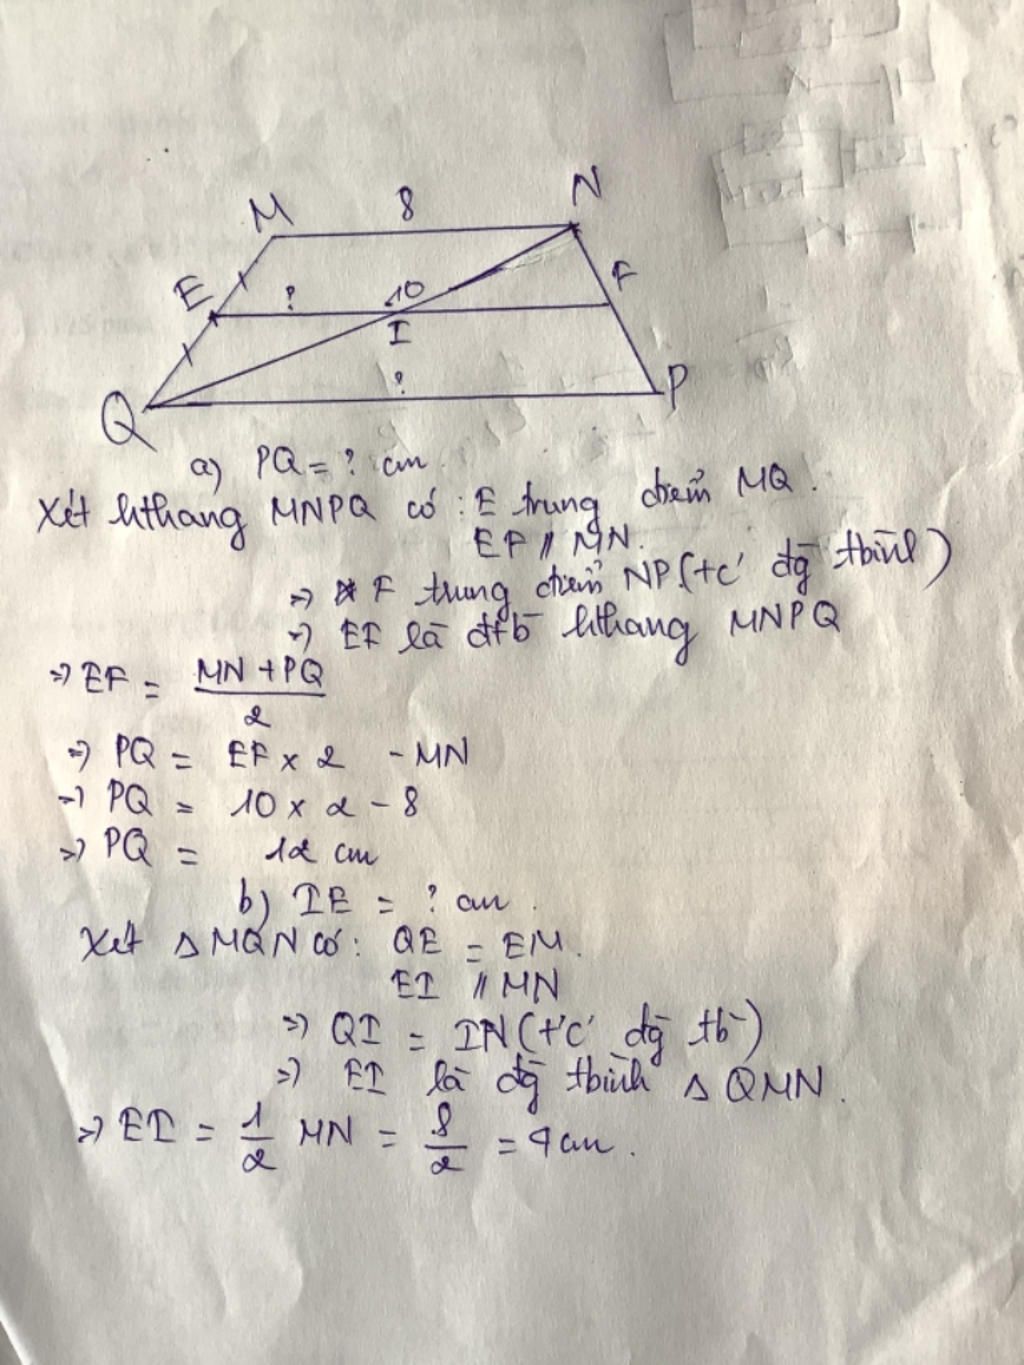 M 8 N
E ? 10 F
I
?
Q P
a) PQ = ? cm
Xét hthang MNPQ có : E trung điểm MQ.
EF // MN.
=> F trung điểm NP (t/c' đg tbình)
=> EF là đtb hthang MNPQ
=> EF = MN + PQ / 2
=> PQ = EF x 2 - MN
=> PQ = 10 x 2 - 8
=> PQ = 12 cm
b) IE = ? cm.
Xét Δ MQN có: QE = EM.
EI // MN
=> QI = IN (t/c' đg tb)
=> EI là đg tbình Δ QMN.
=> EI = 1/2 MN = 8/2 = 4 cm.